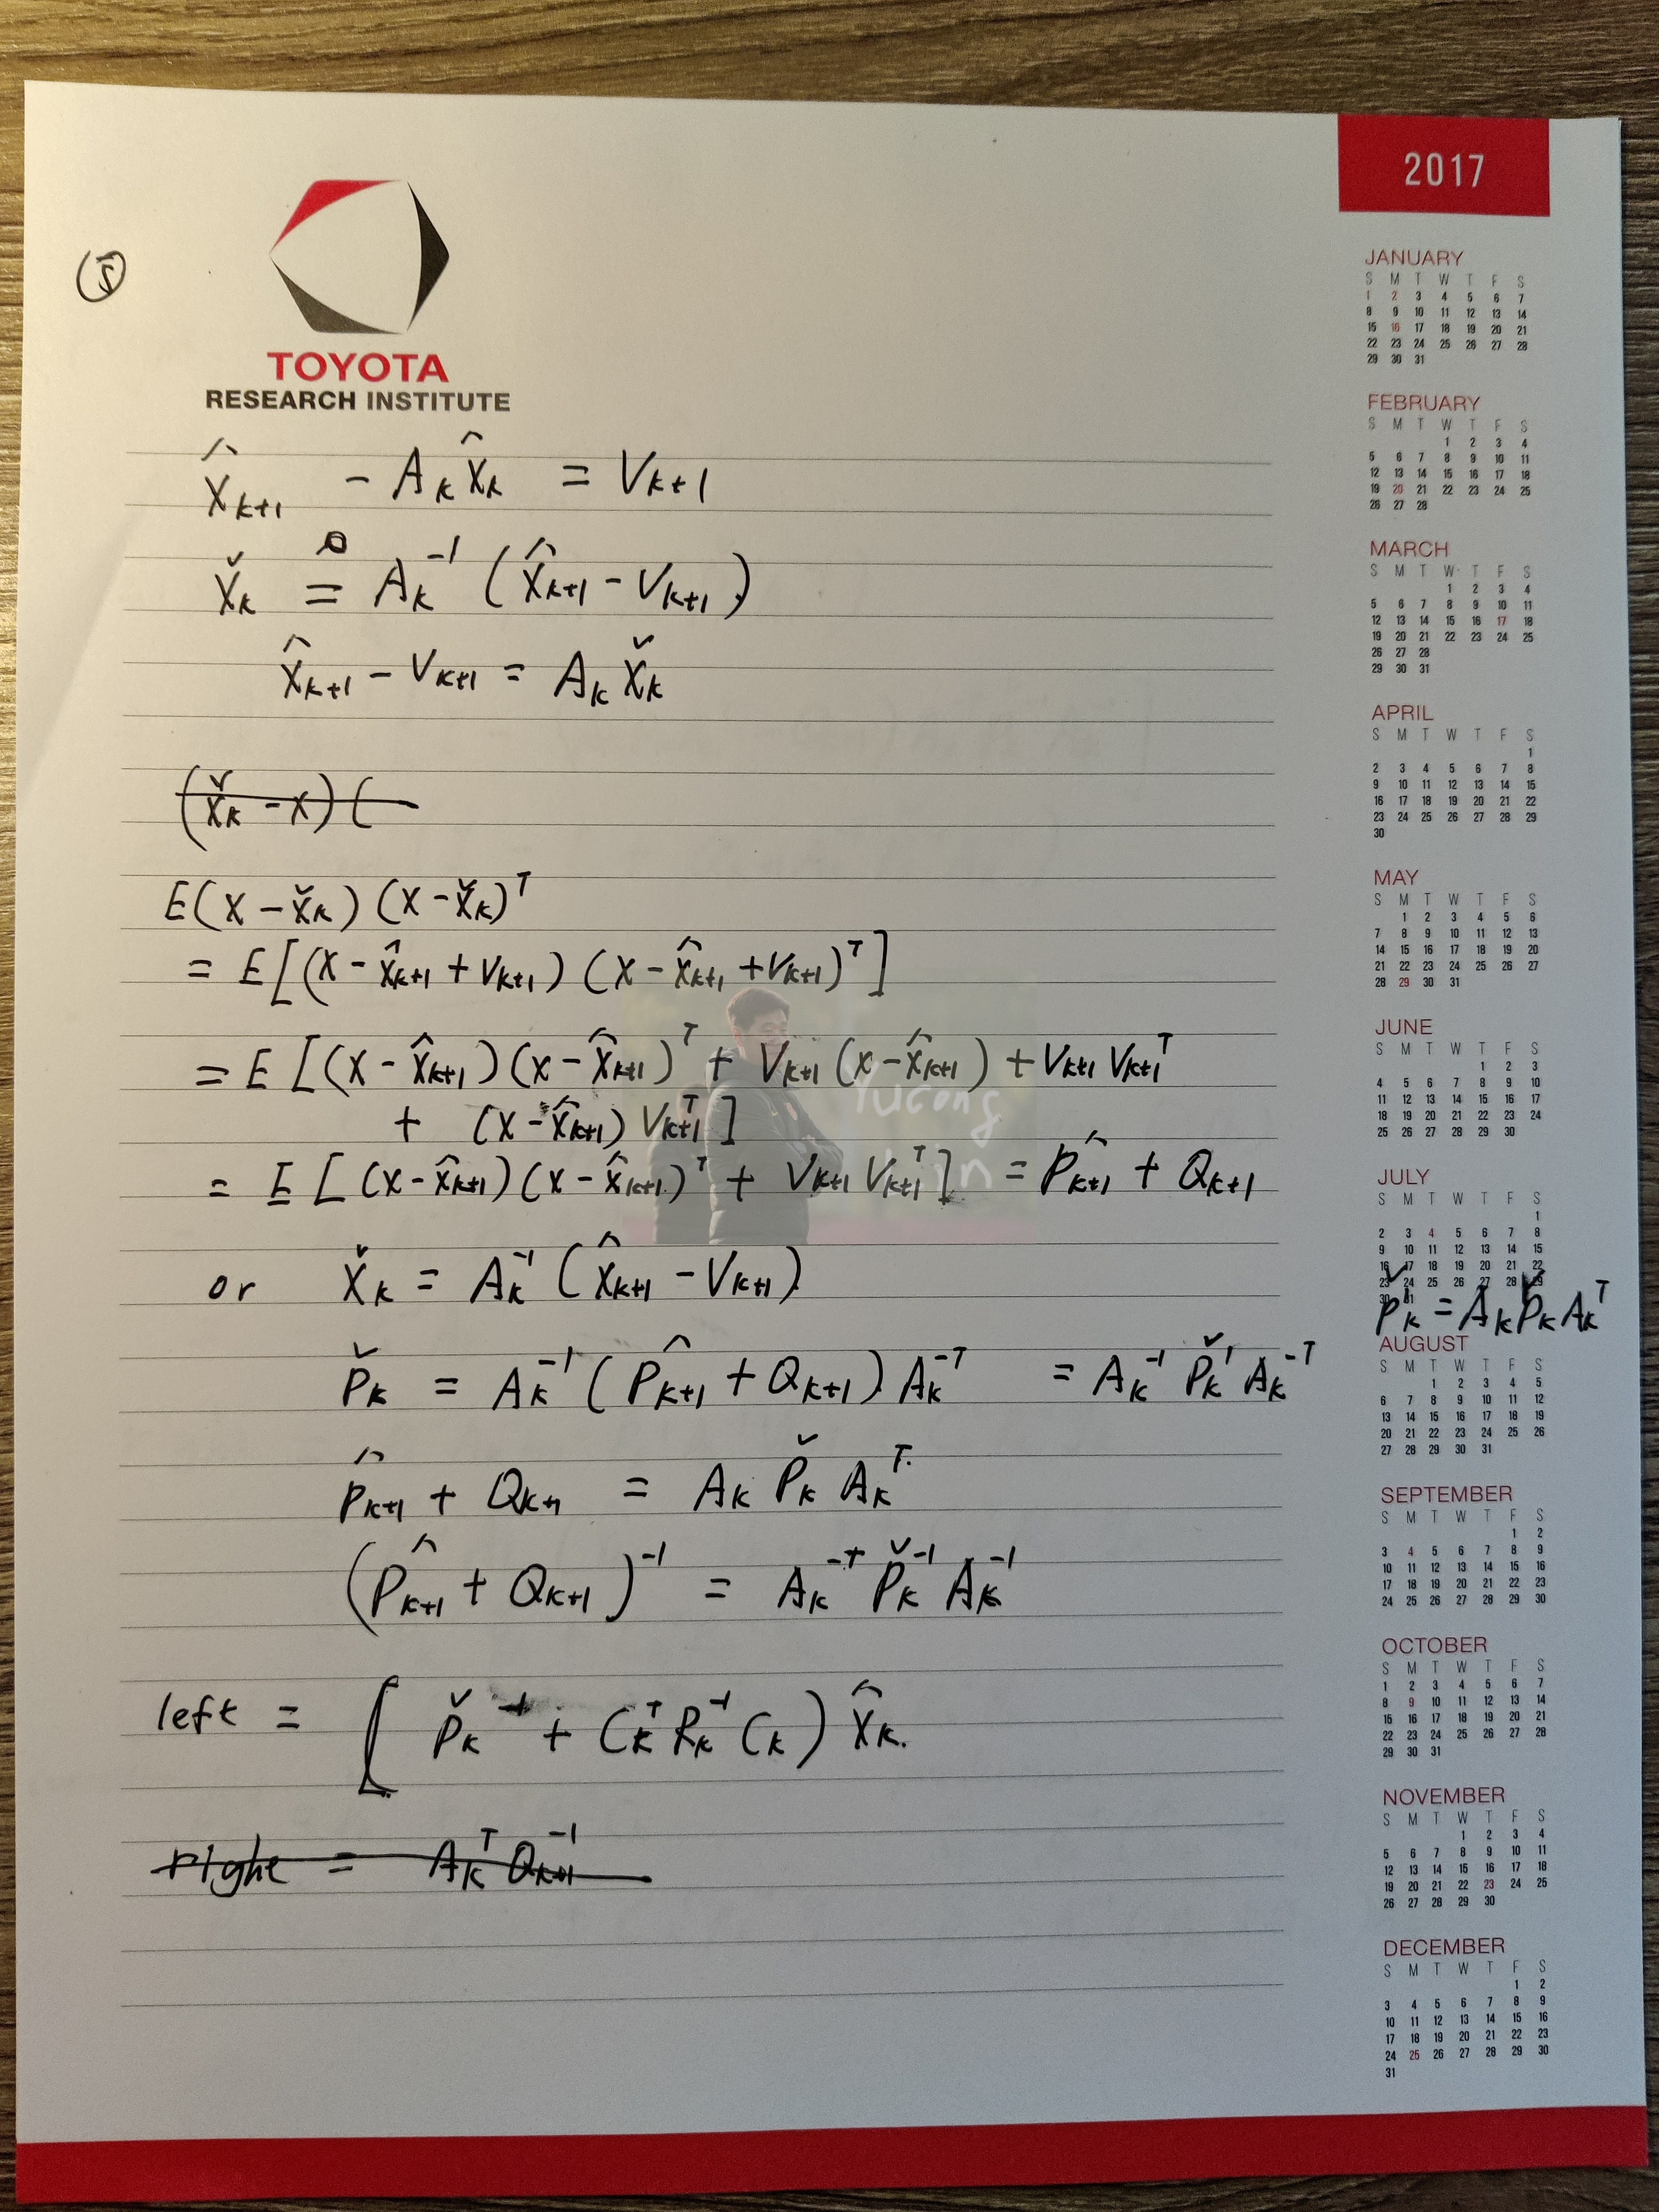 ⑤
TOYOTA
RESEARCH INSTITUTE
2017
x̂ₖ₊₁ - Aₖ x̂ₖ = Vₖ₊₁
x̌ₖ = Aₖ⁻¹ (x̂ₖ₊₁ - Vₖ₊₁)
x̂ₖ₊₁ - Vₖ₊₁ = Aₖ x̌ₖ
(x̌ₖ - x) (
E(x - x̌ₖ) (x - x̌ₖ)ᵀ
= E[(x - x̂ₖ₊₁ + Vₖ₊₁) (x - x̂ₖ₊₁ + Vₖ₊₁)ᵀ]
= E [(x - x̂ₖ₊₁)(x - x̂ₖ₊₁)ᵀ + Vₖ₊₁ (x - x̂ₖ₊₁) + Vₖ₊₁ Vₖ₊₁ᵀ
+ (x - x̂ₖ₊₁) Vₖ₊₁ᵀ]
= E [(x - x̂ₖ₊₁)(x - x̂ₖ₊₁)ᵀ + Vₖ₊₁ Vₖ₊₁ᵀ] = P̂ₖ₊₁ + Qₖ₊₁
or x̌ₖ = Aₖ⁻¹ (x̂ₖ₊₁ - Vₖ₊₁)
P̌ₖ = Aₖ⁻¹ (P̂ₖ₊₁ + Qₖ₊₁) Aₖ⁻ᵀ = Aₖ⁻¹ P̌ₖ' Aₖ⁻ᵀ
P̂ₖ₊₁ + Qₖ₊₁ = Aₖ P̌ₖ Aₖᵀ
(P̂ₖ₊₁ + Qₖ₊₁)⁻¹ = Aₖ⁻ᵀ P̌ₖ⁻¹ Aₖ⁻¹
left = [ P̌ₖ⁻¹ + Cₖᵀ Rₖ⁻¹ Cₖ) x̂ₖ.
right = Aₖᵀ Qₖ₊₁⁻¹
Yucong
JANUARY
S M T W T F S
1 2 3 4 5 6 7
8 9 10 11 12 13 14
15 16 17 18 19 20 21
22 23 24 25 26 27 28
29 30 31
FEBRUARY
S M T W T F S
1 2 3 4
5 6 7 8 9 10 11
12 13 14 15 16 17 18
19 20 21 22 23 24 25
26 27 28
MARCH
S M T W T F S
1 2 3 4
5 6 7 8 9 10 11
12 13 14 15 16 17 18
19 20 21 22 23 24 25
26 27 28
29 30 31
APRIL
S M T W T F S
1
2 3 4 5 6 7 8
9 10 11 12 13 14 15
16 17 18 19 20 21 22
23 24 25 26 27 28 29
30
MAY
S M T W T F S
1 2 3 4 5 6
7 8 9 10 11 12 13
14 15 16 17 18 19 20
21 22 23 24 25 26 27
28 29 30 31
JUNE
S M T W T F S
1 2 3
4 5 6 7 8 9 10
11 12 13 14 15 16 17
18 19 20 21 22 23 24
25 26 27 28 29 30
JULY
S M T W T F S
1
2 3 4 5 6 7 8
9 10 11 12 13 14 15
16 17 18 19 20 21 22
23 24 25 26 27 28 29
30 31
P̌ₖ' = Aₖ P̌ₖ Aₖᵀ
AUGUST
S M T W T F S
1 2 3 4 5
6 7 8 9 10 11 12
13 14 15 16 17 18 19
20 21 22 23 24 25 26
27 28 29 30 31
SEPTEMBER
S M T W T F S
1 2
3 4 5 6 7 8 9
10 11 12 13 14 15 16
17 18 19 20 21 22 23
24 25 26 27 28 29 30
OCTOBER
S M T W T F S
1 2 3 4 5 6 7
8 9 10 11 12 13 14
15 16 17 18 19 20 21
22 23 24 25 26 27 28
29 30 31
NOVEMBER
S M T W T F S
1 2 3 4
5 6 7 8 9 10 11
12 13 14 15 16 17 18
19 20 21 22 23 24 25
26 27 28 29 30
DECEMBER
S M T W T F S
1 2
3 4 5 6 7 8 9
10 11 12 13 14 15 16
17 18 19 20 21 22 23
24 25 26 27 28 29 30
31